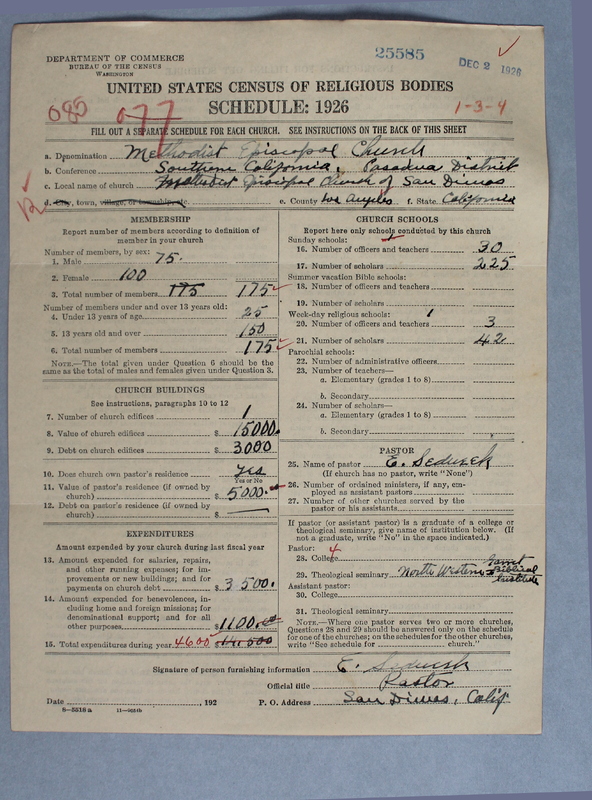 25585
DEC 2 1926
DEPARTMENT OF COMMERCE
BUREAU OF THE CENSUS
WASHINGTON
UNITED STATES CENSUS OF RELIGIOUS BODIES
SCHEDULE: 1926
085
077
1-3-4
FILL OUT A SEPARATE SCHEDULE FOR EACH CHURCH. SEE INSTRUCTIONS ON THE BACK OF THIS SHEET
a. Denomination Methodist Episcopal Church
b. Conference Southern California, Pasadena District
c. Local name of church Methodist Episcopal Church of San Dimas
d. City, town, village, or township, etc. e. County Los Angeles f. State California
MEMBERSHIP
Report number of members according to definition of
member in your church
Number of members, by sex:
1. Male 75.
2. Female 100
3. Total number of members 175 175
Number of members under and over 13 years old:
4. Under 13 years of age 25
5. 13 years old and over 150
6. Total number of members 175
NOTE.—The total given under Question 6 should be the
same as the total of males and females given under Question 3.
CHURCH BUILDINGS
See instructions, paragraphs 10 to 12
7. Number of church edifices 1
8. Value of church edifices $ 15000.
9. Debt on church edifices $ 3000
10. Does church own pastor's residence yes
Yes or No
11. Value of pastor's residence (if owned by
church) $ 5000.
12. Debt on pastor's residence (if owned by
church) $
EXPENDITURES
Amount expended by your church during last fiscal year
13. Amount expended for salaries, repairs,
and other running expenses; for im-
provements or new buildings; and for
payments on church debt $ 3500.
14. Amount expended for benevolences, in-
cluding home and foreign missions; for
denominational support; and for all
other purposes $ 1100.00
15. Total expenditures during year 4600
CHURCH SCHOOLS
Report here only schools conducted by this church
Sunday schools: 1
16. Number of officers and teachers 30
17. Number of scholars 225
Summer vacation Bible schools:
18. Number of officers and teachers
19. Number of scholars
Week-day religious schools: 1
20. Number of officers and teachers 3
21. Number of scholars 42
Parochial schools:
22. Number of administrative officers
23. Number of teachers—
a. Elementary (grades 1 to 8)
b. Secondary
24. Number of scholars—
a. Elementary (grades 1 to 8)
b. Secondary
PASTOR
25. Name of pastor E.
(If church has no pastor, write "None")
26. Number of ordained ministers, if any, em-
ployed as assistant pastors
27. Number of other churches served by the
pastor or his assistants
If pastor (or assistant pastor) is a graduate of a college or
theological seminary, give name of institution below. (If
not a graduate, write "No" in the space indicated.)
Pastor: 4
28. College
29. Theological seminary North Western Garret Biblical Institute
Assistant pastor:
30. College
31. Theological seminary
NOTE.—Where one pastor serves two or more churches,
Questions 28 and 29 should be answered only on the schedule
for one of the churches; on the schedules for the other churches,
write "See schedule for church."
Signature of person furnishing information E.
Official title Pastor
Date , 192 P. O. Address San Dimas, Calif
8—5518 a